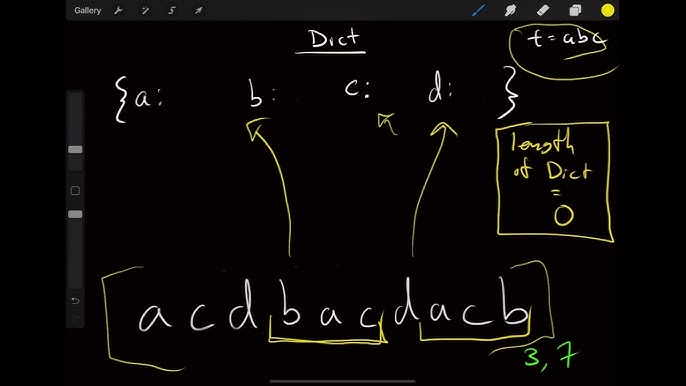 Gallery
Dict
t = abc
{ a: b: c: d: }
length
of Dict
=
0
a c d b a c d a c b
3, 7